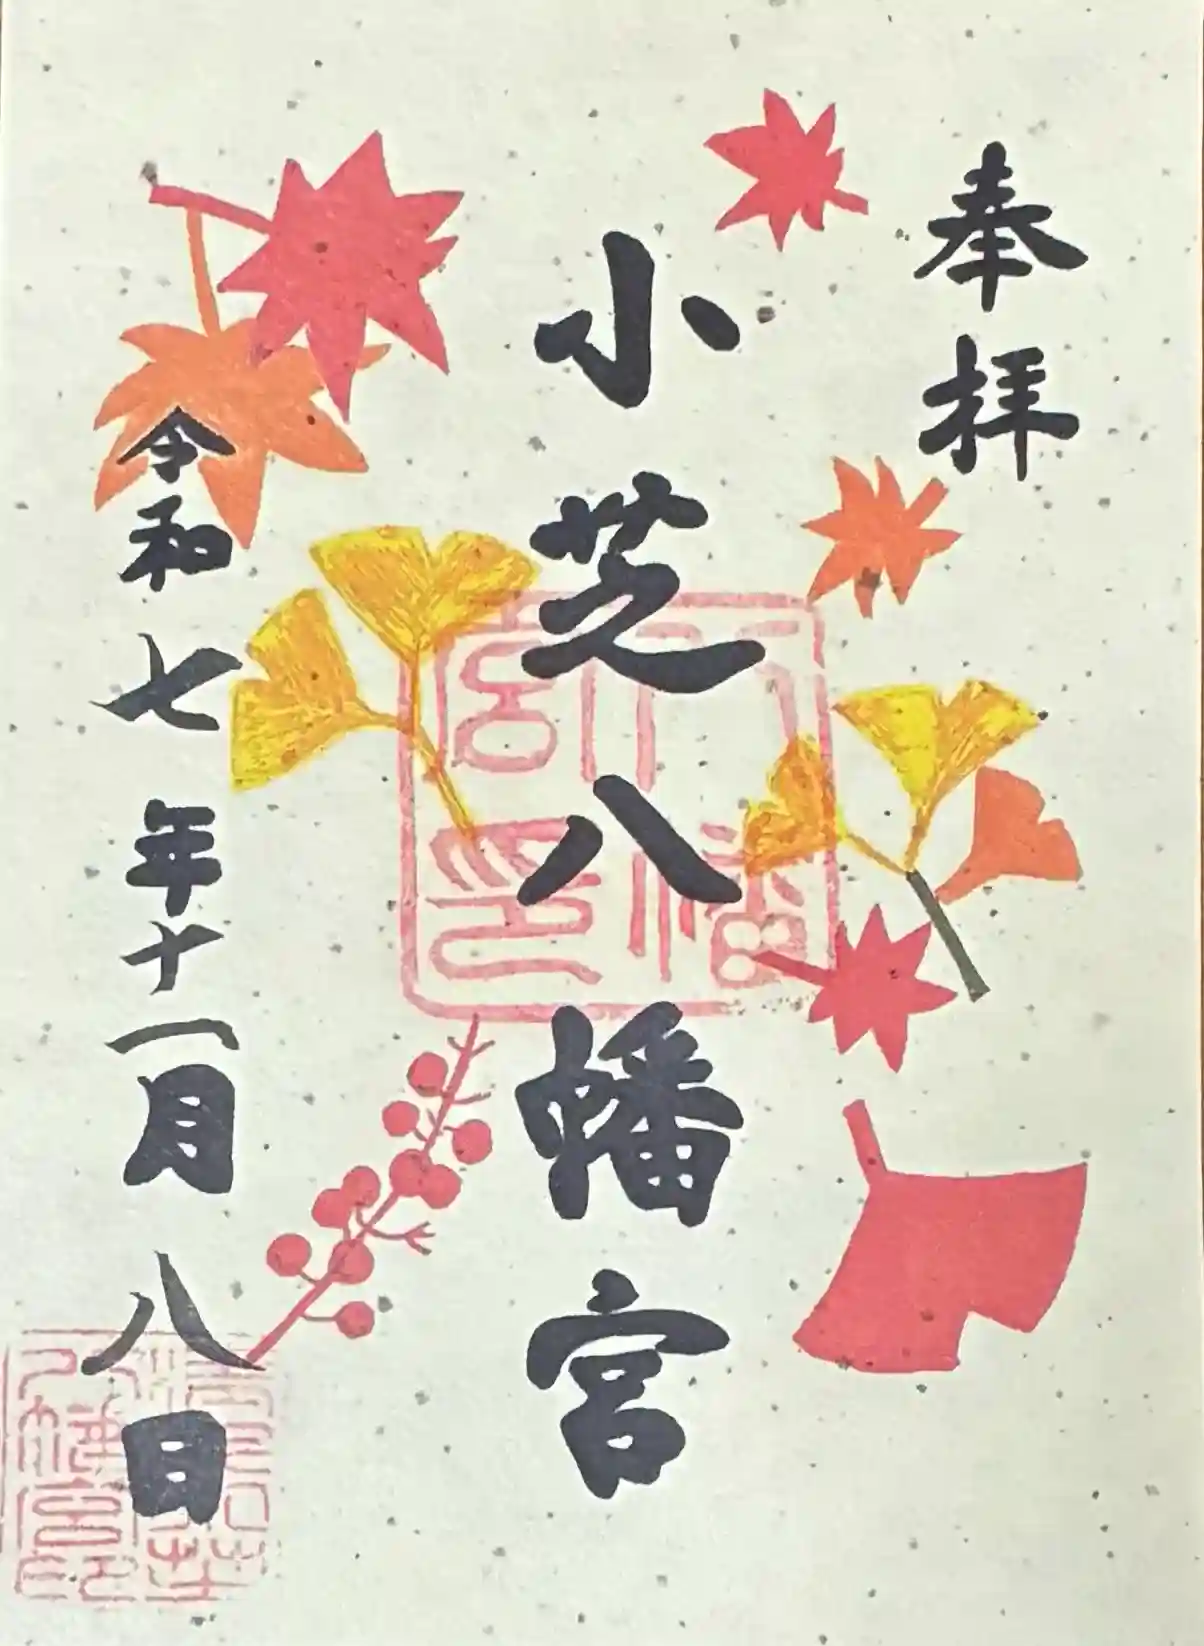 奉拝
小芝八幡宮
八幡宮印
令和七年十一月八日